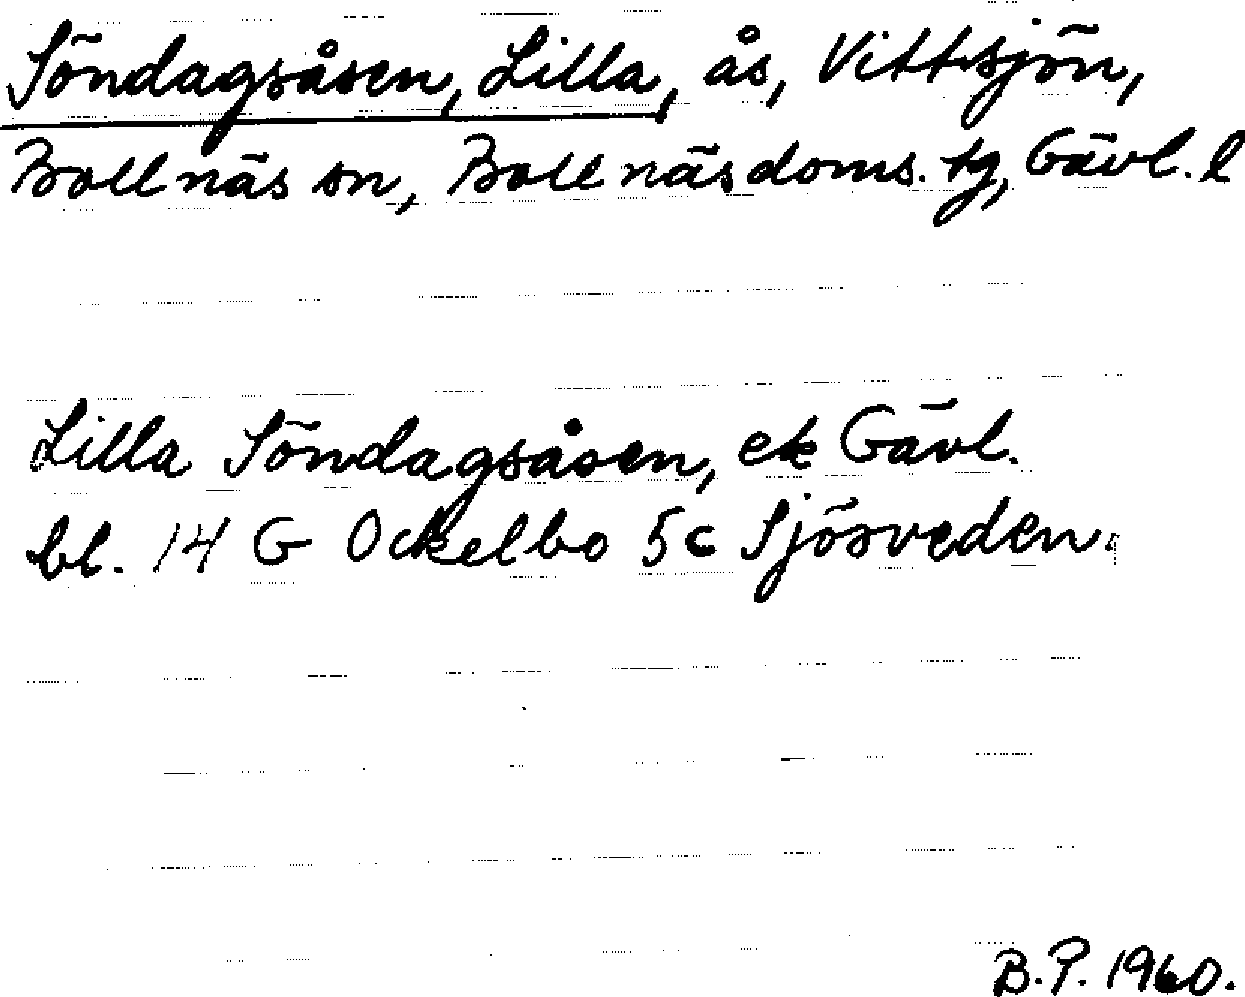 Söndagsåsen, Lilla, ås, Vittsjön,
Bollnäs sn, Bollnäs doms. tg, Gävl. l
Lilla Söndagsåsen, ek Gävl.
bl. 14 G Ockelbo 5c Sjösveden.
B.P. 1960.